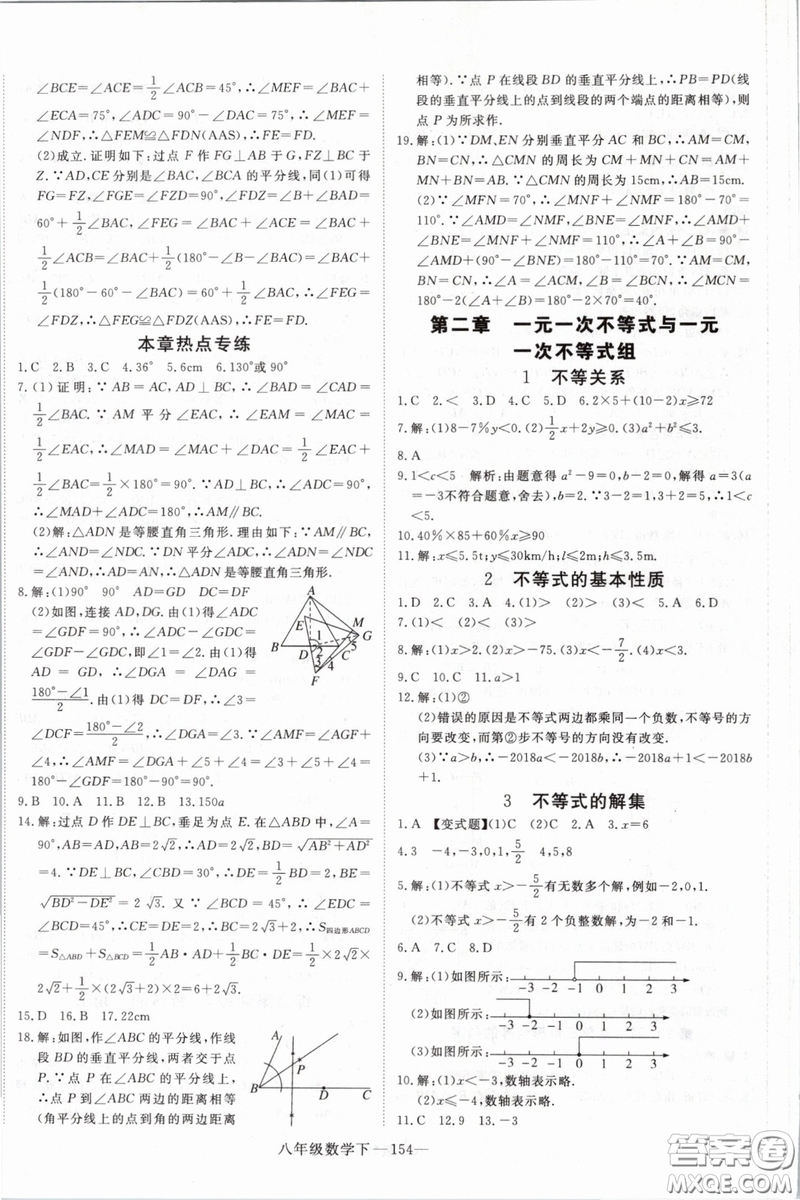 ∠BCE=∠ACE=1/2∠ACB=45°,∴∠MEF=∠BAC+
∠ECA=75°,∠ADC=90°-∠DAC=75°,∴∠MEF=
∠NDF,∴△FEM≌△FDN(AAS),∴FE=FD.
(2)成立.证明如下:过点 F 作FG⊥AB于G,FZ⊥BC于
Z.∵AD,CE 分别是∠BAC,∠BCA的平分线,同(1)可得
FG=FZ,∠FGE=∠FZD=90°,∠FDZ=∠B+∠BAD=
60°+1/2∠BAC,∠FEG=∠BAC+∠ACE=∠BAC+
1/2∠ACB=∠BAC+1/2(180°-∠B-∠BAC)=∠BAC+
1/2(180°-60°-∠BAC)=60°+1/2∠BAC,∴∠FEG=
∠FDZ,∴△FEG≌△FDZ(AAS),∴FE=FD.
本章热点专练
1.C 2.B 3.C 4.36° 5.6cm 6.130°或90°
7.(1)证明:∵AB=AC,AD⊥BC,∴∠BAD=∠CAD=
1/2∠BAC.∵AM平分∠EAC,∴∠EAM=∠MAC=
1/2∠EAC,∴∠MAD=∠MAC+∠DAC=1/2∠EAC+
1/2∠BAC=1/2×180°=90°.∵AD⊥BC,∴∠ADC=90°,
∴∠MAD+∠ADC=180°,∴AM∥BC.
(2)解:△ADN是等腰直角三角形.理由如下:∵AM∥BC,
∴∠AND=∠NDC.∵DN平分∠ADC,∴∠ADN=∠NDC
=∠AND,∴AD=AN,∴△ADN是等腰直角三角形.
8.解:(1)90° 90° AD=GD DC=DF
(2)如图,连接AD,DG.由(1)得∠ADC
=∠GDF=90°,∴∠ADC-∠GDC=
∠GDF-∠GDC,即∠1=∠2.由(1)得
AD=GD,∴∠DAG=∠DGA=
(180°-∠1)/2.由(1)得 DC=DF,∴∠3=
∠DCF=(180°-∠2)/2,∴∠DGA=∠3.∵∠AMF=∠AGF+
∠4,∴∠AMF=∠DGA+∠5+∠4=∠3+∠5+∠4=
180°-∠GDF=180°-90°=90°.
A
M
G
B
D
C
F
1
2
3
4
5
9.B 10.A 11.B 12.B 13.150a
14.解:过点D作DE⊥BC,垂足为点E.在△ABD中,∠A=
90°,AB=AD,AB=2√2,∴AD=2√2,BD=√(AB²+AD²)
=4.∵DE⊥BC,∠DBC=30°,∴DE=1/2BD=2,BE=
√(BD²-DE²)=2√3.又∵∠BCD=45°,∴∠EDC=
∠BCD=45°,∴CE=DE=2,∴BC=2√3+2,∴S四边形ABCD
=S△ABD+S△BCD=1/2AB·AD+1/2BC·DE=1/2×2√2×
2√2+1/2×(2√3+2)×2=6+2√3.
15.D 16.B 17.22cm
18.解:如图,作∠ABC的平分线,作线
段BD的垂直平分线,两者交于点
P.∵点P在∠ABC的平分线上,
∴点P到∠ABC的两边距离相等
(角平分线上的点到角的两边距离
A
P
B
D
C
相等).∵点P在线段BD的垂直平分线上,∴PB=PD(线
段的垂直平分线上的点到线段的两个端点的距离相等),则
点P为所求作.
19.解:(1)∵DM,EN分别垂直平分AC和BC,∴AM=CM,
BN=CN,∴△CMN的周长为CM+MN+CN=AM+
MN+BN=AB.∵△CMN的周长为15cm,∴AB=15cm.
(2)∵∠MFN=70°,∴∠MNF+∠NMF=180°-70°=
110°.∵∠AMD=∠NMF,∠BNE=∠MNF,∴∠AMD+
∠BNE=∠MNF+∠NMF=110°,∴∠A+∠B=90°-
∠AMD+(90°-∠BNE)=180°-110°=70°.∵AM=CM,
BN=CN,∴∠A=∠ACM,∠B=∠BCN,∴∠MCN=
180°-2(∠A+∠B)=180°-2×70°=40°.
第二章 一元一次不等式与一元
一次不等式组
1 不等关系
1.C 2.< 3.D 4.C 5.D 6.2×5+(10-2)x≥72
7.解:(1)8-7%y<0.(2)1/2x+2y≥0.(3)a²+b²≤3.
8.A
9.1<c<5 解析:由题意得a²-9=0,b-2=0.解得a=3(a
=-3不符合题意,舍去),b=2.∵3-2=1,3+2=5,∴1<c
<5.
10.40%×85+60%x≥90
11.解:x≤5.5t;y≤30km/h;l≤2m;h≤3.5m.
2 不等式的基本性质
1.D 2.C 3.A 4.(1)> (2)> (3)< 5.A 6.A
7.(1)< (2)< (3)>
8.解:(1)x>2.(2)x>-5.(3)x<-7/2.(4)x<3.
9.C 10.C 11.a>1
12.解:(1)②
(2)错误的原因是不等式两边都乘同一个负数,不等号的方
向要改变,而第②步不等号的方向没有改变.
(3)∵a>b,∴-2018a<-2018b,∴-2018a+1<-2018b
+1.
3 不等式的解集
1.A 【变式题】(1)C (2)C 2.A 3.x=6
4.3 -4,-3,0,1,5/2 4,5,8
5.解:(1)不等式x>-5/2有无数多个解,例如-2,0,1.
(2)不等式x>-5/2有2个负整数解,为-2和-1.
6.A 7.C 8.D
9.解:(1)如图所示: -3 -2 -1 0 1 2 3
(2)如图所示: -3 -2 -1 0 1 2 3
(3)如图所示: -3 -2 -1 0 1 2 3
10.解:(1)x<-3,数轴表示略.
(2)x≤-2,数轴表示略.
11.C 12.9 13.-3
八年级数学下—154—
答案圈
MXQE.COM